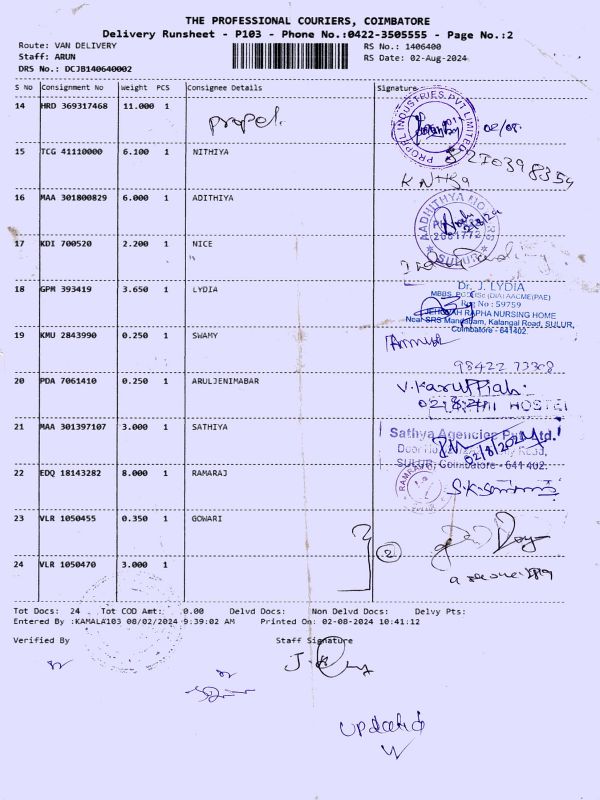 THE PROFESSIONAL COURIERS, COIMBATORE
Delivery Runsheet - P103 - Phone No.:0422-3505555 - Page No.:2
Route: VAN DELIVERY
RS No.: 1406400
Staff: ARUN
RS Date: 02-Aug-2024
DRS No.: DCJB140640002
S No Consignment No Weight PCS Consignee Details Signature
14 HRD 369317468 11.000 1 propel.
PROPEL INDUSTRIES PVT LIMITED
15 TCG 41110000 6.100 1 NITHIYA
16 MAA 301800829 6.000 1 ADITHIYA
17 KDI 700520 2.200 1 NICE
18 GPM 393419 3.650 1 LYDIA
Dr. J. LYDIA
Reg No : 59759
RAPHA NURSING HOME
Near SRS Mandapam, Kalangal Road, SULUR,
Coimbatore - 641402.
19 KMU 2843990 0.250 1 SWAMY
98422 73308
20 PDA 7061410 0.250 1 ARULJENIMABAR
V.Karuppiah
21 MAA 301397107 3.000 1 SATHIYA
Sathya Agencies Pvt. Ltd.
02/8/2024
SULUR, Coimbatore - 641 402.
22 EDQ 18143282 8.000 1 RAMARAJ
23 VLR 1050455 0.350 1 GOWARI
2
24 VLR 1050470 3.000 1
Tot Docs: 24 Tot COD Amt: 0.00 Delvd Docs: Non Delvd Docs: Delvy Pts:
Entered By :KAMALA103 08/02/2024 9:39:02 AM Printed On: 02-08-2024 10:41:12
Verified By Staff Signature
updated